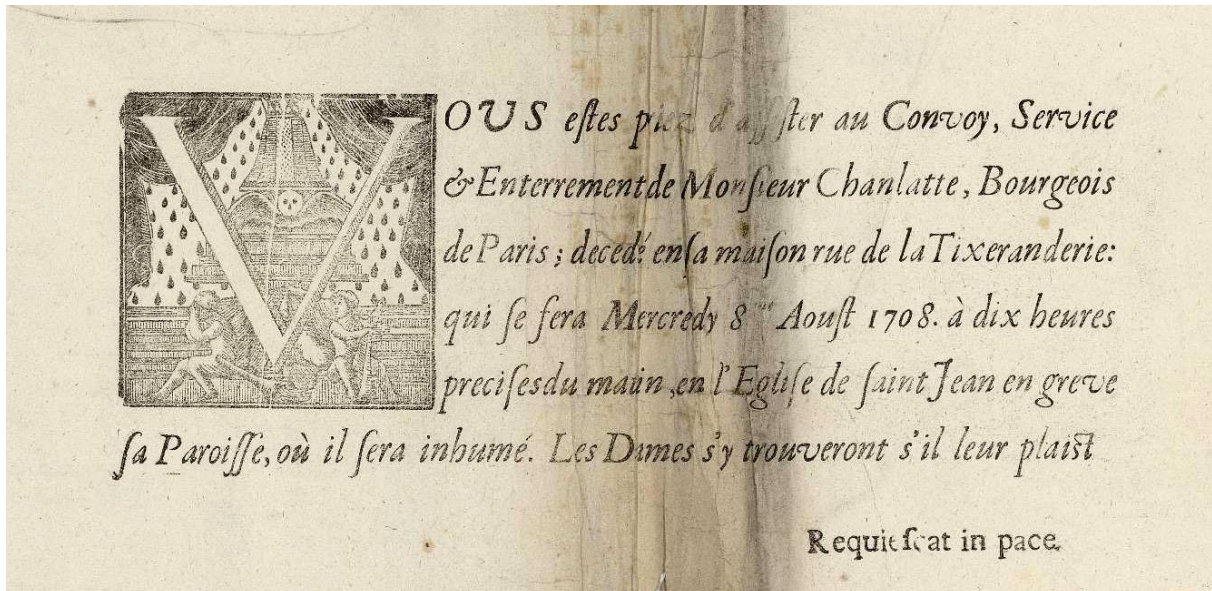 VOUS estes priez d'assister au Convoy, Service
& Enterrement de Monsieur Chanlatte, Bourgeois
de Paris; decedé en sa maison rue de la Tixeranderie:
qui se fera Mercredy 8me Aoust 1708. à dix heures
precises du matin, en l'Eglise de saint Jean en greve
sa Paroisse, où il sera inhumé. Les Dames s'y trouveront s'il leur plaist
Requiescat in pace.